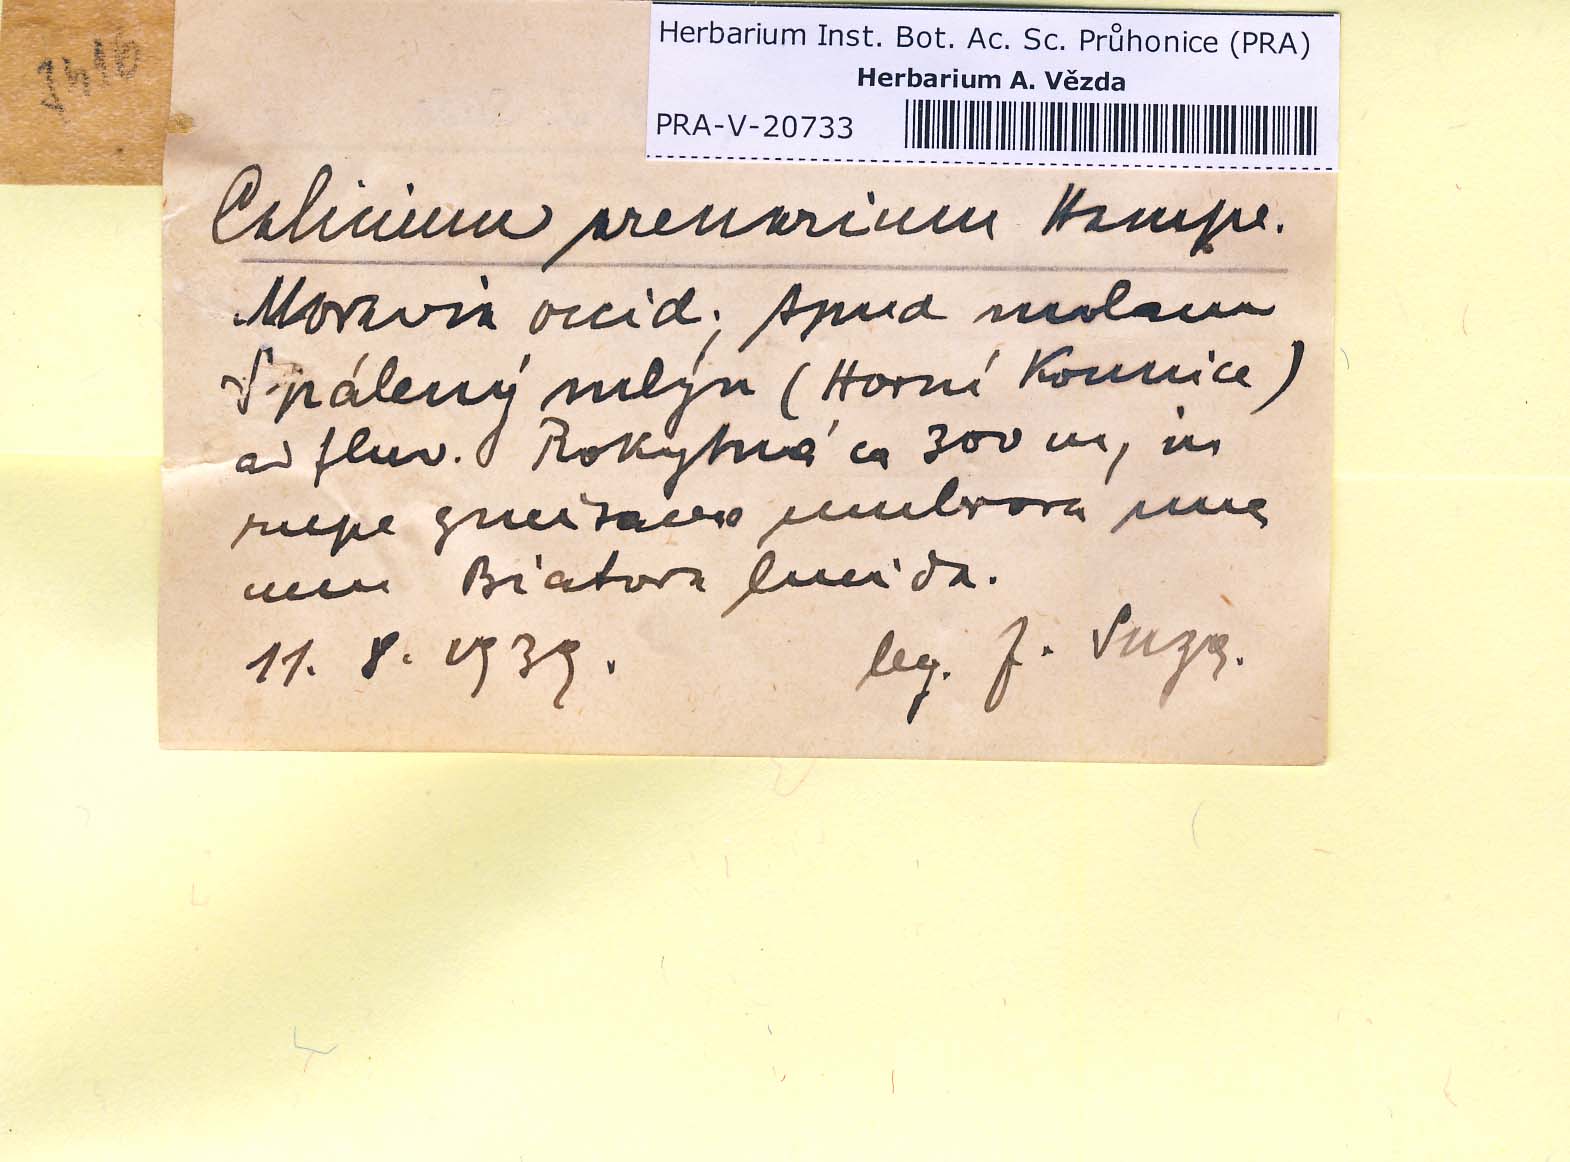 Herbarium Inst. Bot. Ac. Sc. Průhonice (PRA)
Herbarium A. Vězda
PRA-V-20733
Calicium arenarium Hampe.
Moravia occid.; Apud molam
Spálený mlýn (Horní Kounice)
ad fluv. Rokytná ca 300 m, in
rupe gneisaceo umbrosa una
cum Biatora lucida.
11. 8. 1939. leg. J. Suza.